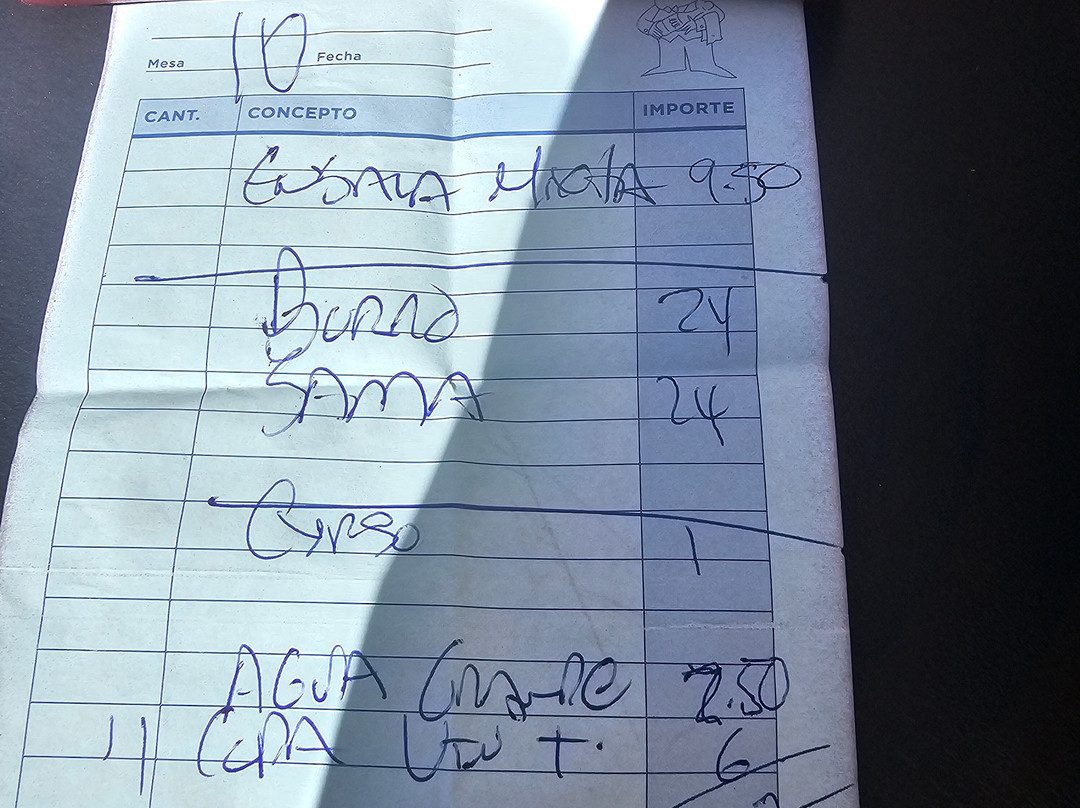 Mesa 10 Fecha
CANT. CONCEPTO IMPORTE
MixtA 9.50
Burro 24
SAMA 24
1
AGUA Grande 2.50
COPA Vino T. 6